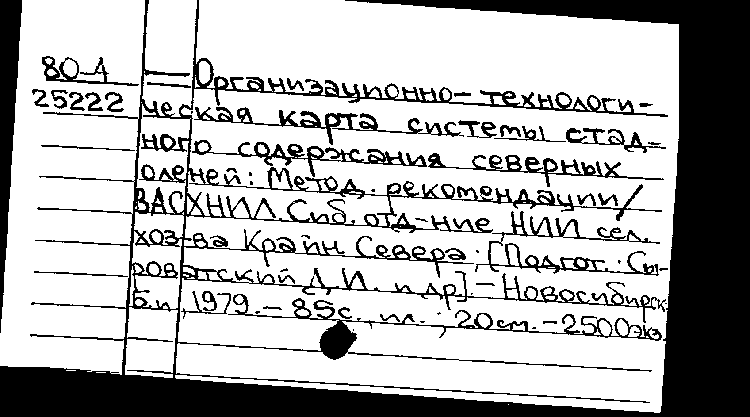 80-4 — Организационно-технологи-
25222 ческая карта системы стад-
ного содержания северных
оленей: Метод. рекомендации/
ВАСХНИЛ. Сиб. отд-ние, НИИ сел.
хоз-ва Крайн Севера; [Подгот.: Сы-
роватский Д.И. и др]. - Новосибирск:
Б.и, 1979. - 85с., ил.; 20см. - 2500экз.